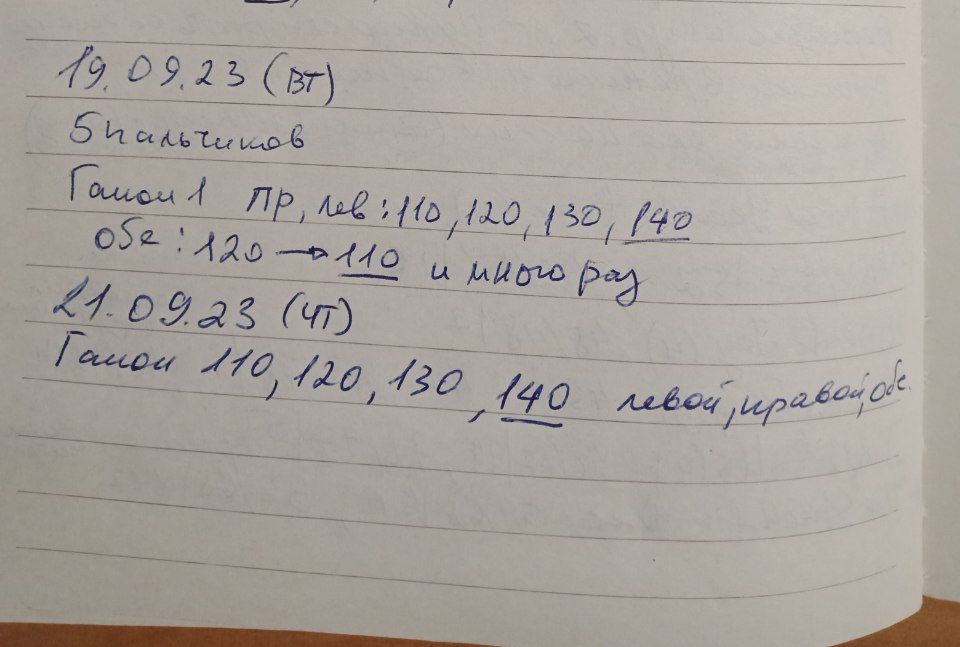 19.09.23 (ВТ)
5 пальчиков
Ганон 1 Пр, лев: 110, 120, 130, 140
Обе: 120 → 110 и много раз
21.09.23 (ЧТ)
Ганон 110, 120, 130, 140 левой, правой, обе.